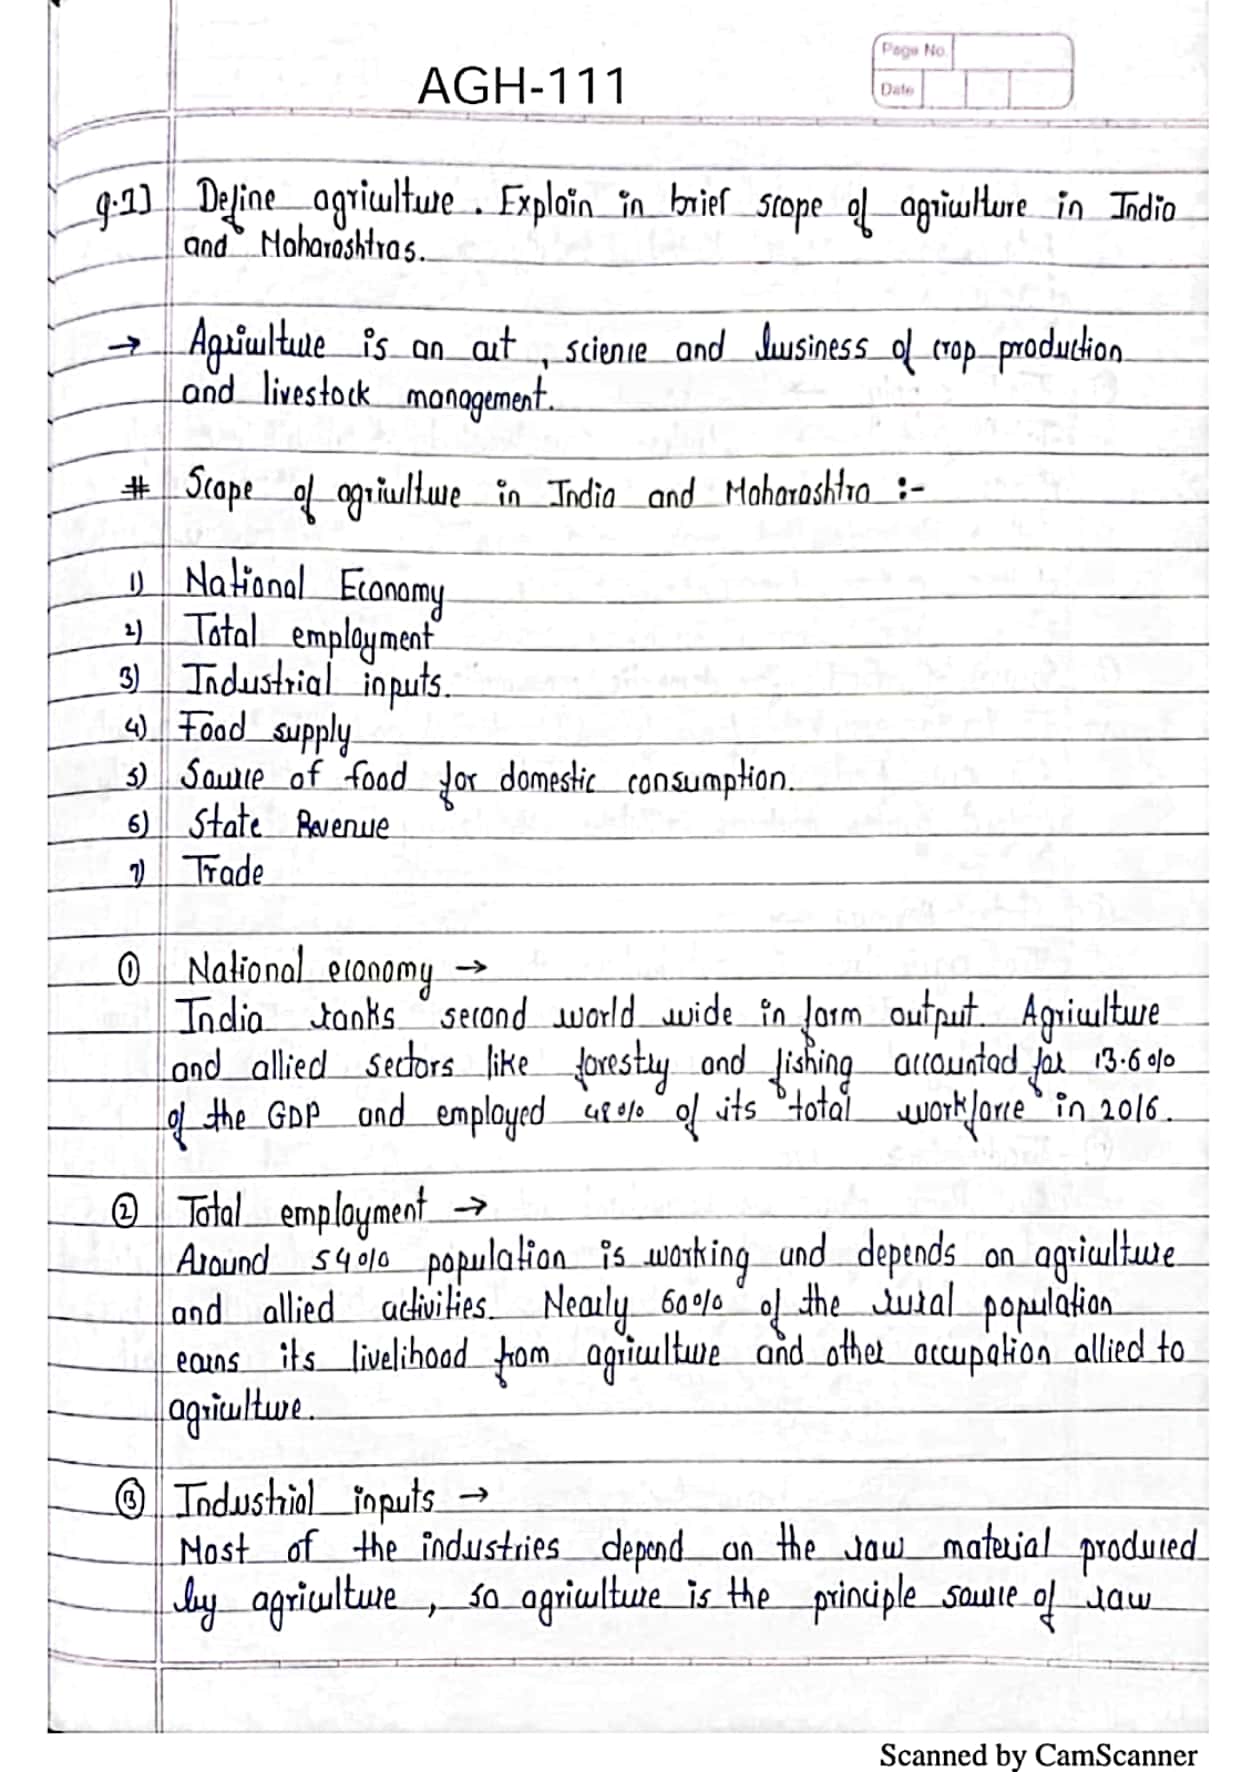 Page No.
Date
AGH-111
Q.1] Define agriculture. Explain in brief scope of agriculture in India
and Maharashtras.
→ Agriculture is an art, science and business of crop production
and livestock management.
# Scope of agriculture in India and Maharashtra :-
1) National Economy
2) Total employment
3) Industrial inputs.
4) Food supply
5) Source of food for domestic consumption.
6) State Revenue
7) Trade
① National economy →
India ranks second world wide in farm output. Agriculture
and allied sectors like forestry and fishing accounted for 13.6%
of the GDP and employed 48% of its total workforce in 2016.
② Total employment →
Around 54% population is working and depends on agriculture
and allied activities. Nearly 60% of the rural population
earns its livelihood from agriculture and other occupation allied to
agriculture.
③ Industrial inputs →
Most of the industries depend on the raw material produced
by agriculture, so agriculture is the principle source of raw
Scanned by CamScanner